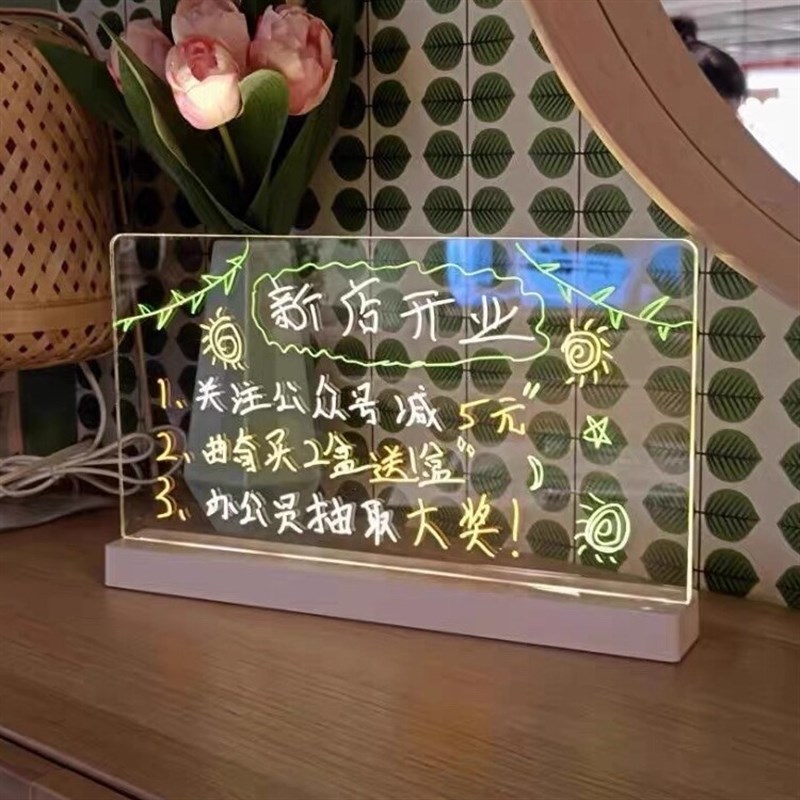 新店开业
1、关注公众号减5元"
2、曲奇买2盒送1盒"
3、办公员抽取大奖!